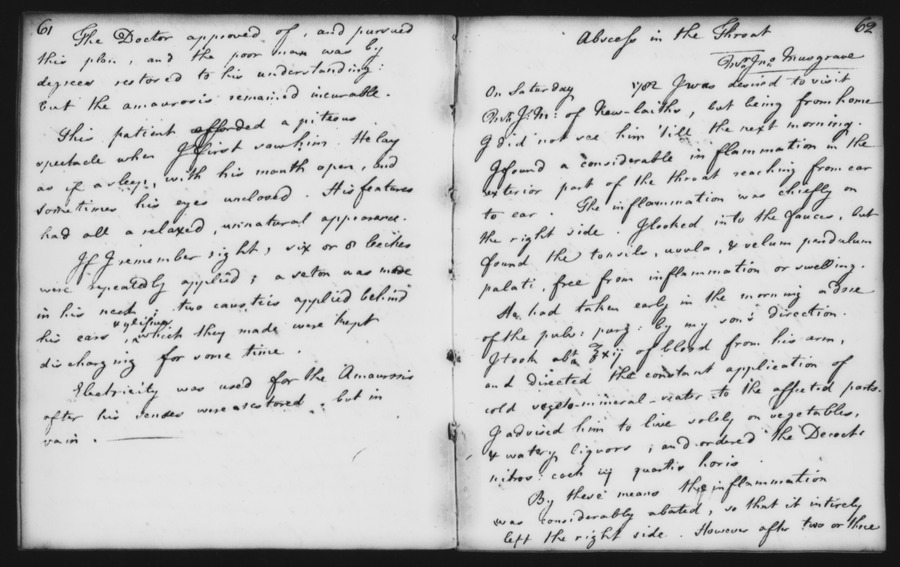 61
The Doctor approved of, and pursued
this plan, and the poor man was by
degrees restored to his understanding:
but the amaurosis remained incurable.
This patient afforded a piteous
spectacle when I first saw him. He lay
as if asleep, with his mouth open, and
sometimes his eyes unclosed. His features
had all a relaxed, unnatural appearance.
If I remember right, six or 8 leeches
were repeatedly applied; a seton was made
in his neck; two caustics applied behind
his ears, & which they made were kept
discharging for some time.
Electricity was used for the Amaurosis
after his senses were restored, but in
vain.
62
Abscess in the Throat
Jno. Musgrave
On Saturday 1702 I was desired to visit
J. M. of New-laiths, but being from home
I did not see him 'till the next morning.
I found a considerable inflammation in the
exterior part of the throat reaching from ear
to ear. The inflammation was chiefly on
the right side. I looked into the fauces, but
found the tonsils, uvula, & velum pendulum
palati, free from inflammation or swelling.
He had taken early in the morning a dose
of the pulv: purg: by my son's direction.
I took abt ℥xij of blood from his arm,
and directed the constant application of
cold vegeto-mineral-water to the affected parts.
I advised him to live solely on vegetables,
& watery liquors; and ordered the Decoct:
nitros: coch iij quartis horis
By these means the inflammation
was considerably abated, so that it intirely
left the right side. However after two or three